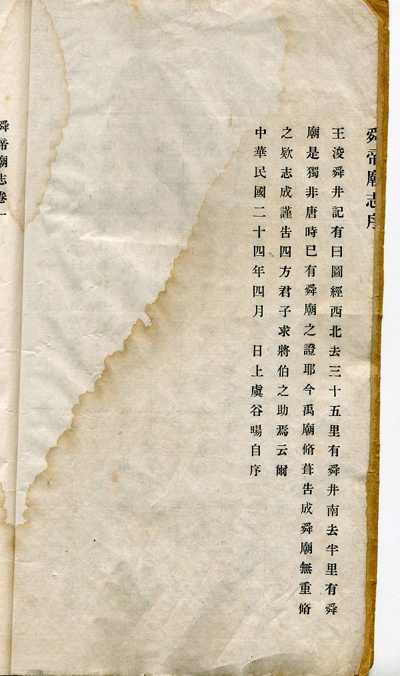 舜帝廟志序
王浚舜井記有曰圖經西北去三十五里有舜井南去半里有舜
廟是獨非唐時已有舜廟之證耶今禹廟脩葺告成舜廟無重脩
之欵志成謹告四方君子求將伯之助焉云爾
中華民國二十四年四月　日上虞谷暘自序
舜帝廟志卷一